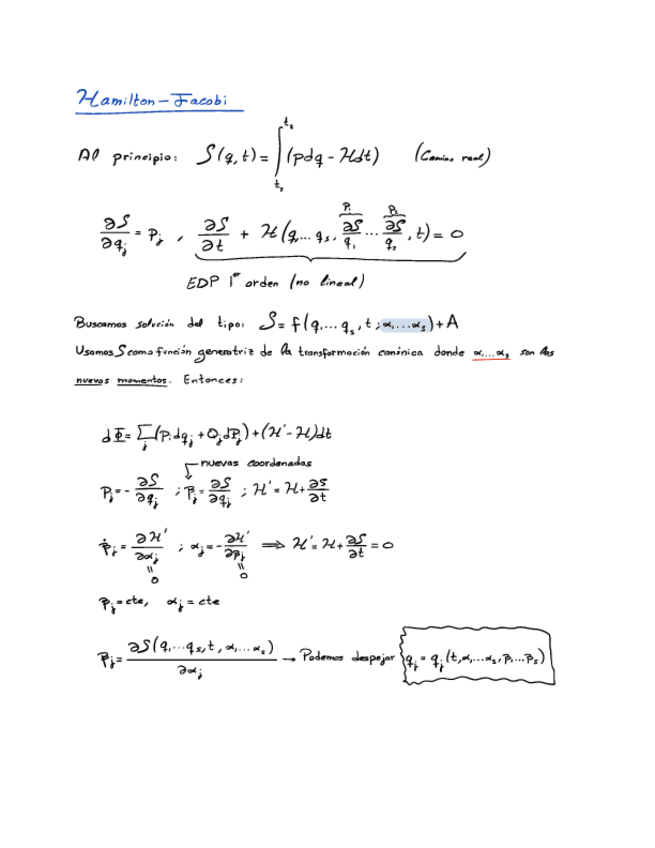 Hamilton-Jacobi
Al principio: S(q, t) = ∫_{t_1}^{t_2} (pdq - ℋdt) (Camino real)
∂S/∂q_j = P_j , ∂S/∂t + ℋ(q_1 ... q_s, ∂S/q_1 ... ∂S/q_s, t) = 0
EDP 1er orden (no lineal)
Buscamos solución del tipo: S = f(q_1 ... q_s, t ; α_1 ... α_s) + A
Usamos S como función generatriz de la transformación canónica donde α_1 ... α_s son los
nuevos momentos. Entonces:
dΦ = Σ_j (P_j dq_j + Q_j dP_j) + (ℋ' - ℋ)dt
nuevas coordenadas
P_j = - ∂S/∂q_j ; β_j = ∂S/∂q_j ; ℋ' = ℋ + ∂S/∂t
β̇_j = ∂ℋ'/∂α_j ; α_j = - ∂ℋ'/∂β_j ⟹ ℋ' = ℋ + ∂S/∂t = 0
= 0 = 0
β_j = cte, α_j = cte
β_j = ∂S(q_1 ... q_s, t, α_1 ... α_s)/∂α_j → Podemos despejar q_j = q_j (t, α_1 ... α_s, β_1 ... β_s)